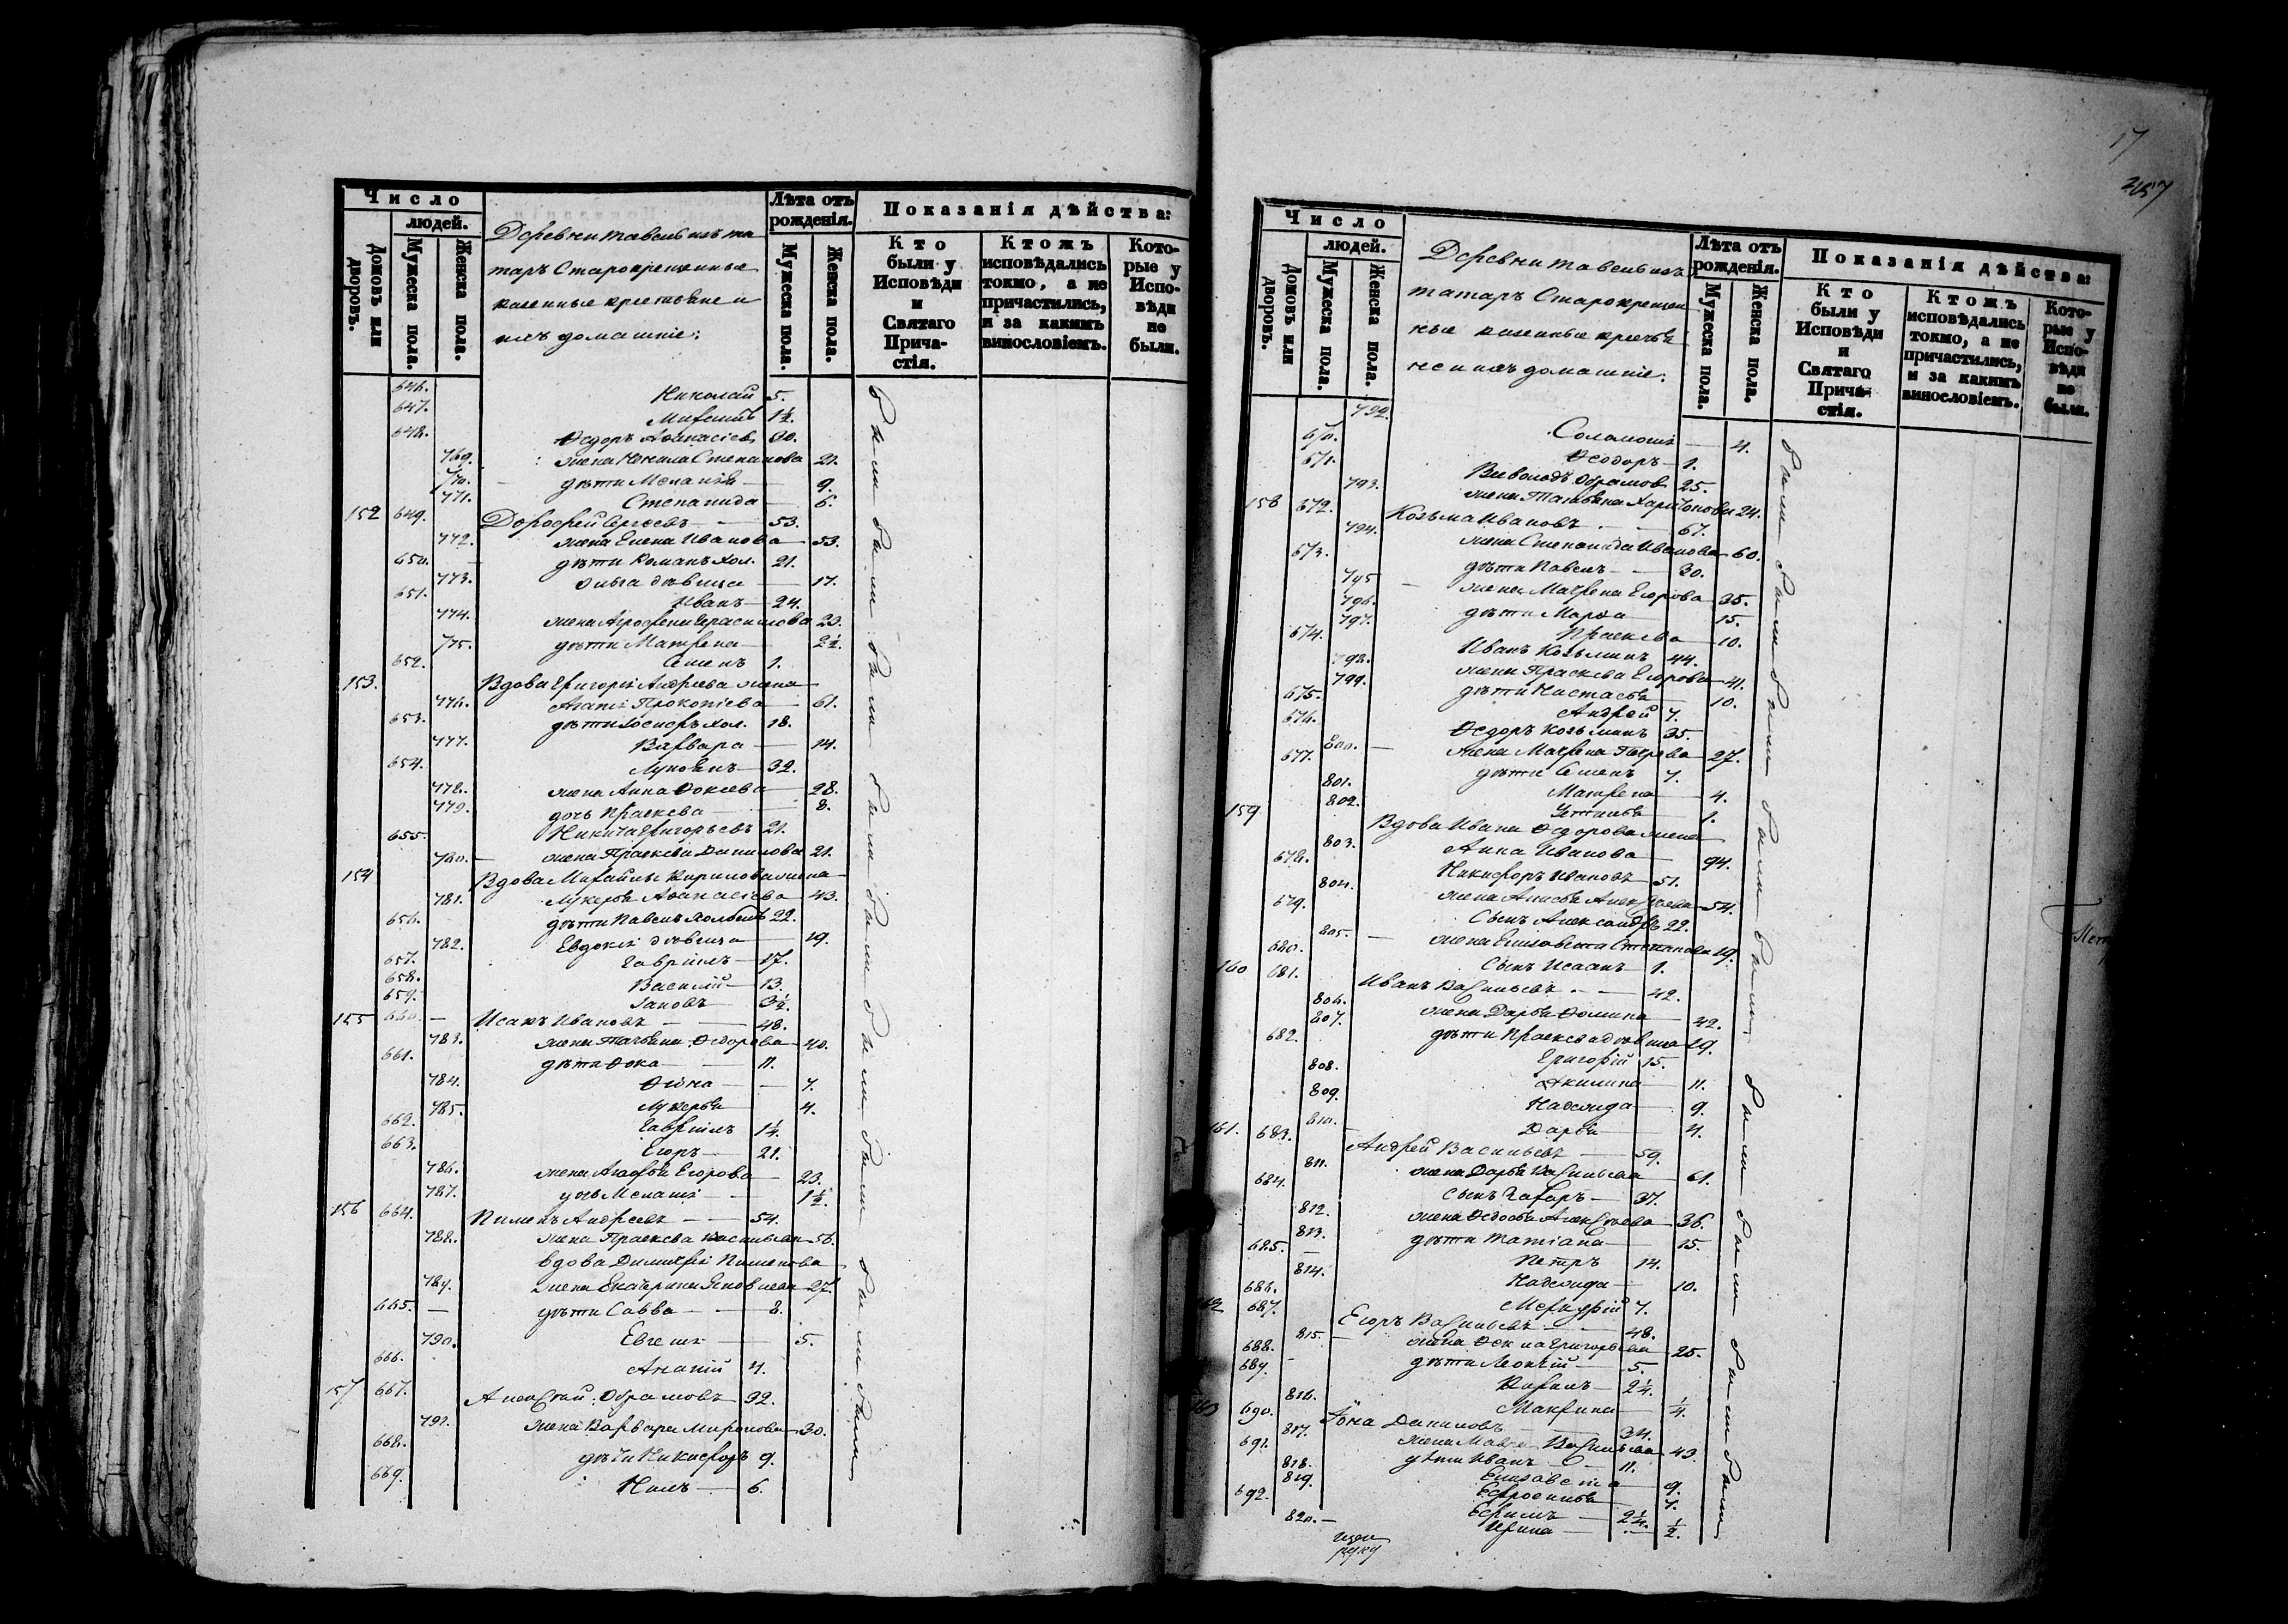 Число
людей.
Домовъ или дворовъ.
Мужеска пола.
Женска пола.
Деревни изъ та
таръ Старокрещенные
казенные крестьяне и
ихъ домашніе:
Лѣта отъ рожденія.
Мужеска пола.
Женска пола.
Показанія дѣйства:
Кто были у Исповѣди и Святаго Причастія.
Ктожъ исповѣдались токмо, а не причастились, и за какимъ винословіемъ.
Которые у Исповѣди не были.
646. Николай 5.
647. 1½.
648. Ѳедоръ Аѳанасіевъ 30.
769. жена Ненила Степанова 21.
770. дѣти Меланія 9.
771. Степанида 6.
152 649. Дороѳей Сергѣевъ 53.
772. жена Елена Иванова 53.
650. дѣти Романъ хол. 21.
773. Ольга дѣвица 17.
651. Иванъ 24.
774. жена Агрофена Герасимова 23.
775. дѣти Матрена 2½.
652. Семенъ 1.
153. Вдова Григорія Андреева жена
776. Агапія Прокопіева 61.
653. дѣти Іосифъ хол. 18.
777. Варвара 14.
654. Лукоянъ 32.
778. жена Анна Фокеева 28.
779. дочь Праскева 8.
655. Никита Григорьевъ 21.
780. жена Праскева Данилова 21.
154 Вдова Михайлы Кирилова жена
781. Лукерья Аѳанасіева 43.
656. дѣти Павелъ холостъ 22.
782. Евдокія дѣвица 19.
657. Гавріилъ 17.
658. Василій 13.
659. Іаковъ 3½.
155 660. Исакъ Ивановъ 48.
783. жена Татьяна Ѳедорова 40.
661. дѣти Фока 11.
784. Ѳекла 7.
785. Лукерья 4.
662. Гавріилъ 1¼.
663. Егоръ 21.
786. жена Агафья Егорова 23.
787. дочь Меланія 1½.
156 664. Пименъ Андреевъ 54.
788. жена Праскева Васильева 56.
вдова Димитрія Пименова
789. жена Екатерина Яковлева 27.
665. дѣти Савва 8.
790. Евгенія 5.
666. Ананій 4.
157 667. Алексѣй Абрамовъ 32.
791. жена Варвара Миронова 30.
668. дѣти Никифоръ 9.
669. Нилъ 6.
были были были были были были были были были были были были были
17
257
Число
людей.
Домовъ или дворовъ.
Мужеска пола.
Женска пола.
Деревни изъ
татаръ Старокрещен
ные казенные крестья
не и ихъ домашніе:
Лѣта отъ рожденія.
Мужеска пола.
Женска пола.
Показанія дѣйства:
Кто были у Исповѣди и Святаго Причастія.
Ктожъ исповѣдались токмо, а не причастились, и за какимъ винословіемъ.
Которые у Исповѣди не были.
792. Соломонія 4.
670. Ѳеодоръ 1.
671. Абрамовъ 25.
793. жена Татьяна Харитонова 24.
158 672. Козьма Ивановъ 67.
794. жена Степанида Иванова 60.
673. дѣти Павелъ 30.
795 жена Матрена Егорова 35.
796. дѣти Марѳа 15.
797. Праскева 10.
674. Иванъ Козьминъ 44.
798. жена Праскева Егорова 41.
799. дѣти Настасья 10.
675. Андрей 7.
676. Ѳедоръ Козьминъ 35.
800. жена Матрена Петрова 27.
677. дѣти Семенъ 7.
801. Матрена 4.
802. Устинья 1.
159 Вдова Ивана Ѳедорова жена
803. Анна Иванова 94.
678. Никифоръ Ивановъ 51.
804. жена Анисья Алексѣева 54.
679. Сынъ Александръ 22.
805. жена Елизавета Степанова 19.
680. Сынъ Исаакъ 1.
160 681. Иванъ Васильевъ 42.
806. жена Дарья Фомина 42.
807. дѣти Праскева дѣвица 19.
682. Григорій 15.
808. Акилина 11.
809. Надежда 9.
810. Дарья 4.
161. 683. Андрей Васильевъ 59.
811. жена Дарья Васильева 61.
684. Сынъ Захаръ 37.
812. жена Ѳедосья Алексѣева 36.
813. дѣти Татіана 15.
685. Петръ 14.
814. Надежда 10.
686. Меркурій 7.
162 687. Егоръ Васильевъ 48.
815. жена Ѳекла Григорьева 25.
688. дѣти Леонтій 5.
689. Кирилъ 2¼.
816. Макрина ¼.
163 690. Іона Даниловъ 34.
817. жена Мавра Васильева 43.
691. дѣти Иванъ 11.
818. Елизавета 9.
819. Ефросинья 7.
692. Ефремъ 2¼.
820. Ирина ½.
были были были были были были были были были были
руку